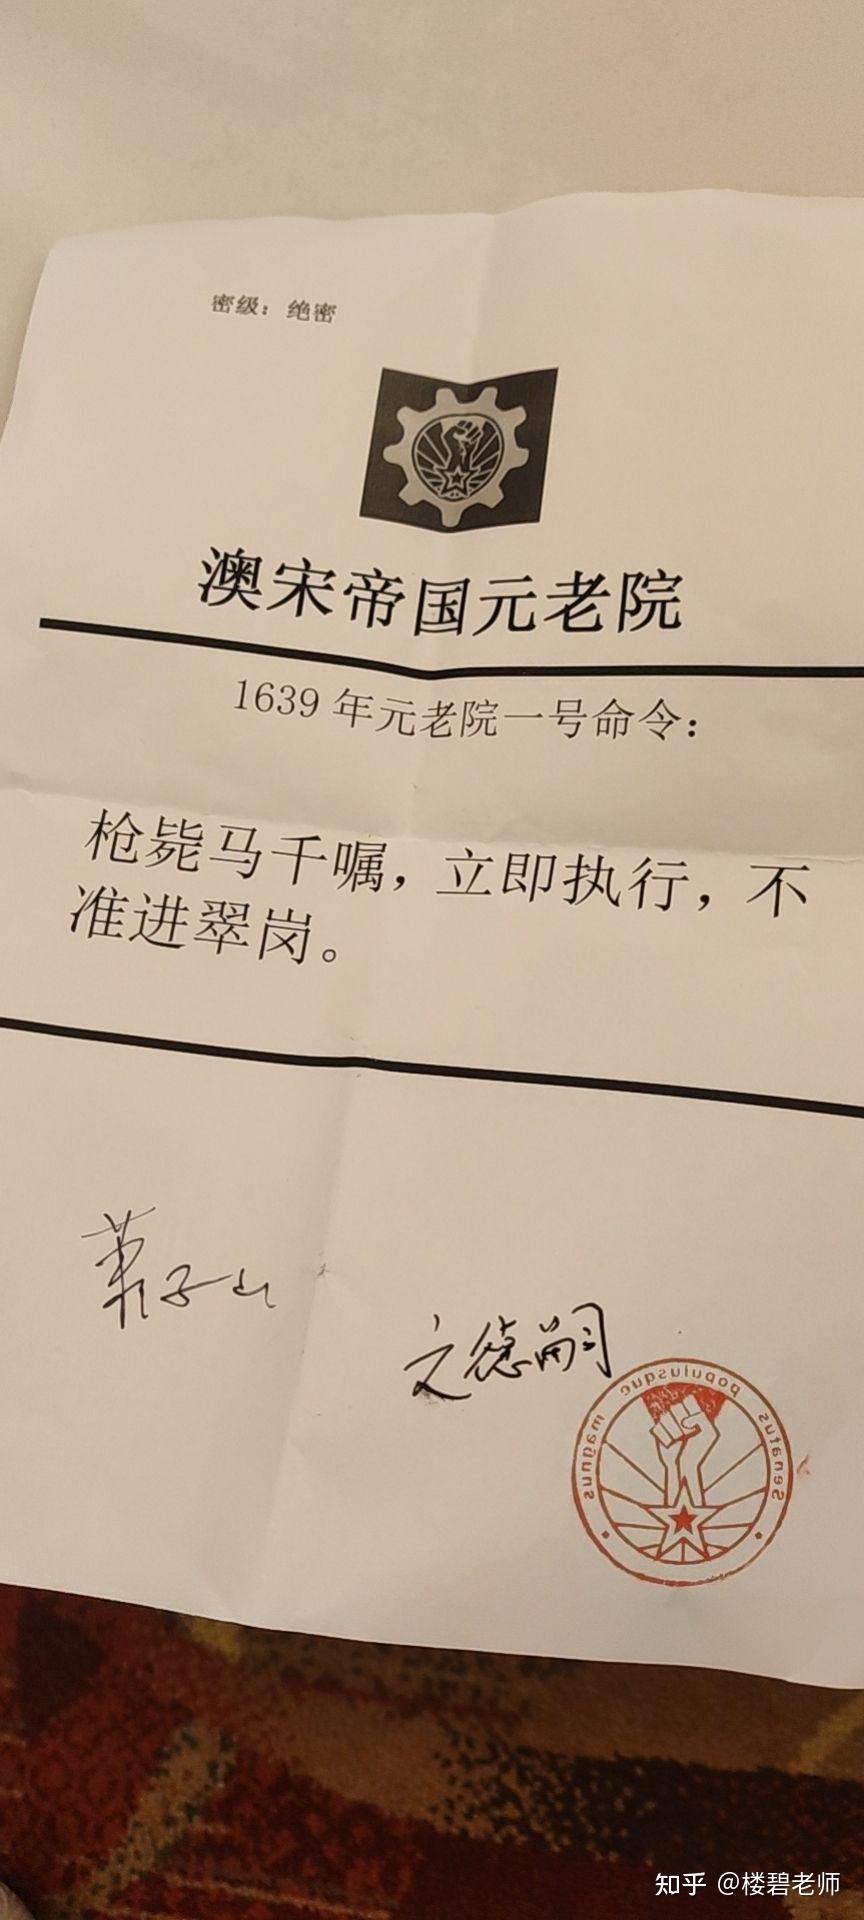 密级：绝密
澳宋帝国元老院
1639年元老院一号命令：
枪毙马千嘱，立即执行，不
准进翠岗。
萧子山
文德嗣
Senatus populusque magnus
知乎 @楼碧老师